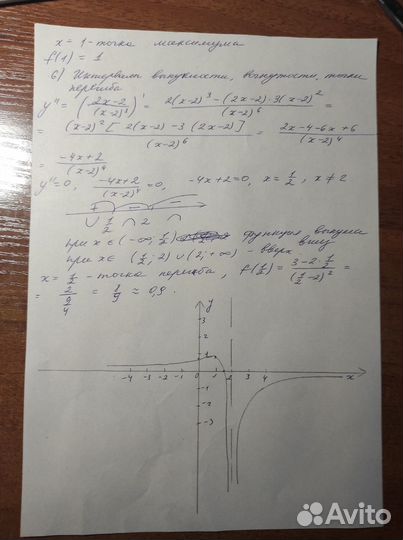 x = 1 - точка максимума
f(1) = 1
6) Интервалы выпуклости, вогнутости, точки
перегиба
y'' = ((2x-2)/(x-2)³)' = (2(x-2)³ - (2x-2)·3(x-2)²)/(x-2)⁶ =
= ((x-2)²[2(x-2) - 3(2x-2)])/(x-2)⁶ = (2x-4-6x+6)/(x-2)⁴
= (-4x+2)/(x-2)⁴
y''=0, (-4x+2)/(x-2)⁴ = 0, -4x+2=0, x = 1/2, x ≠ 2
+ - -
∪ 1/2 ∩ 2 ∩
При x ∈ (-∞; 1/2) функция выпукла
вниз
при x ∈ (1/2; 2) ∪ (2; +∞) - вверх
x = 1/2 - точка перегиба, f(1/2) = (3-2·1/2)/(1/2-2)² =
= 2/(9/4) = 1/9 ≈ 0,9.
y
3
2
1
-4 -3 -2 -1 0 1 2 3 4 x
-1
-2
-3
Avito